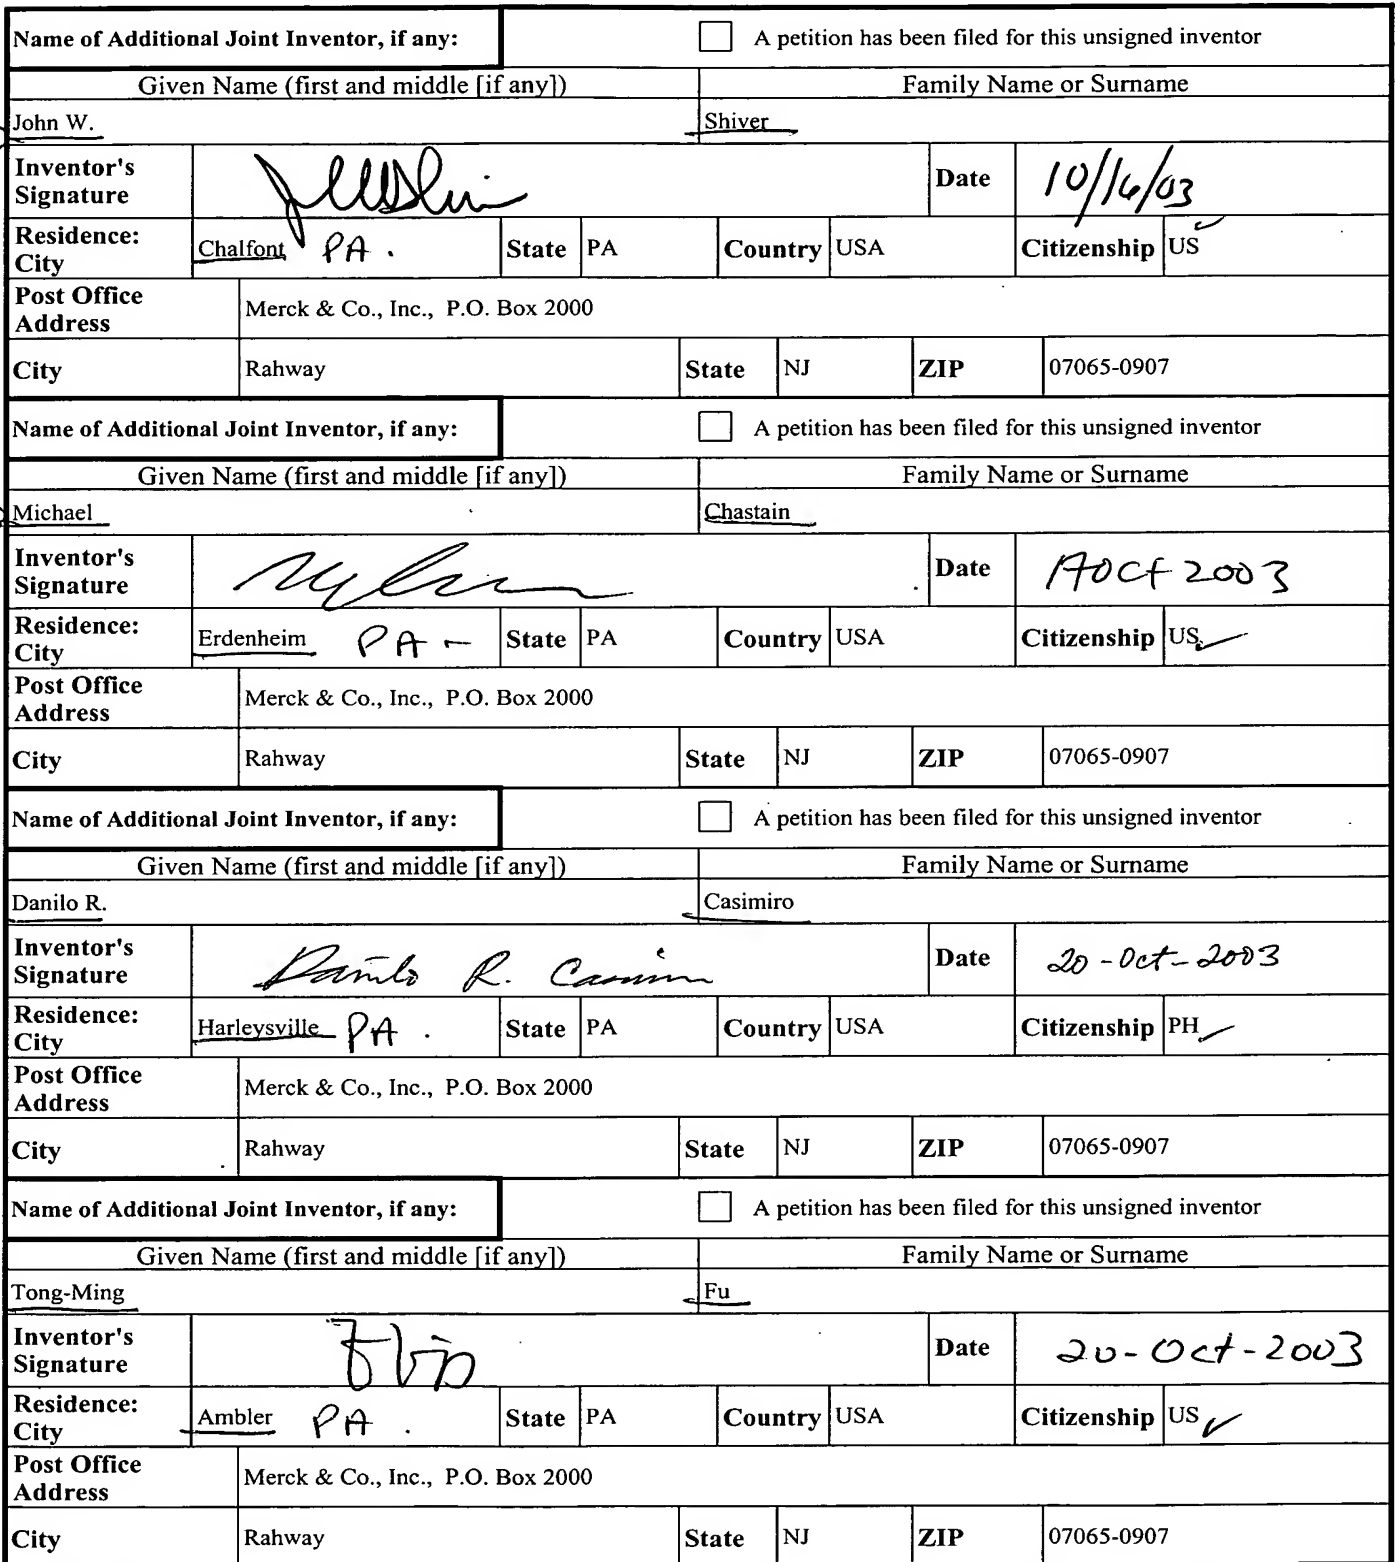 Name of Additional Joint Inventor, if any: A petition has been filed for this unsigned inventor
Given Name (first and middle [if any]) Family Name or Surname
John W. Shiver
Inventor's Signature Date 10/16/03
Residence: City Chalfont PA. State PA Country USA Citizenship US
Post Office Address Merck & Co., Inc., P.O. Box 2000
City Rahway State NJ ZIP 07065-0907
Name of Additional Joint Inventor, if any: A petition has been filed for this unsigned inventor
Given Name (first and middle [if any]) Family Name or Surname
Michael Chastain
Inventor's Signature Date 17 Oct 2003
Residence: City Erdenheim PA - State PA Country USA Citizenship US
Post Office Address Merck & Co., Inc., P.O. Box 2000
City Rahway State NJ ZIP 07065-0907
Name of Additional Joint Inventor, if any: A petition has been filed for this unsigned inventor
Given Name (first and middle [if any]) Family Name or Surname
Danilo R. Casimiro
Inventor's Signature Danilo R. Casimiro Date 20-Oct-2003
Residence: City Harleysville PA. State PA Country USA Citizenship PH
Post Office Address Merck & Co., Inc., P.O. Box 2000
City Rahway State NJ ZIP 07065-0907
Name of Additional Joint Inventor, if any: A petition has been filed for this unsigned inventor
Given Name (first and middle [if any]) Family Name or Surname
Tong-Ming Fu
Inventor's Signature Date 20-Oct-2003
Residence: City Ambler PA. State PA Country USA Citizenship US
Post Office Address Merck & Co., Inc., P.O. Box 2000
City Rahway State NJ ZIP 07065-0907